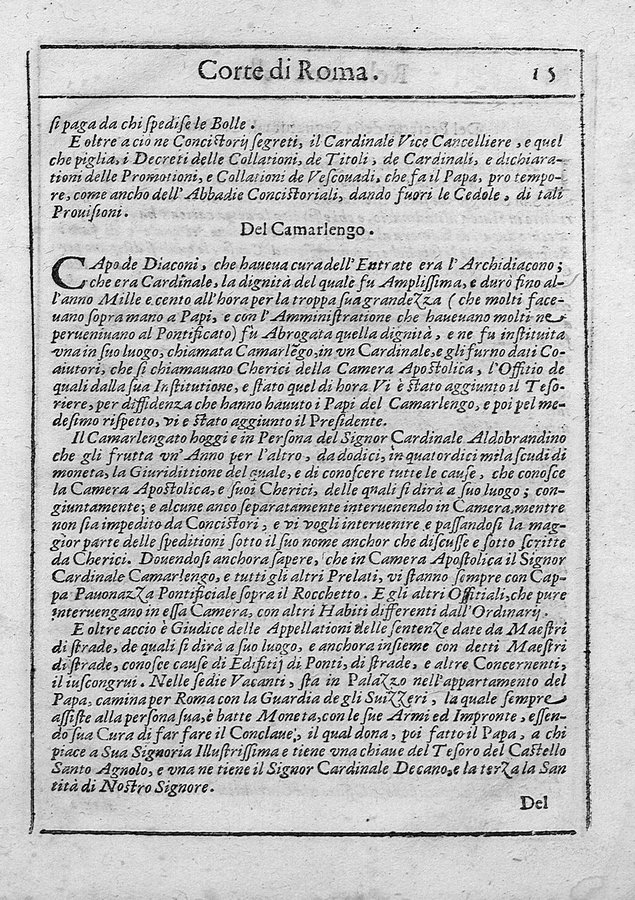 Corte di Roma. 15
ſi paga da chi ſpediſe le Bolle.
E oltre a cio ne Conciſtorij ſegreti, il Cardinale Vice Cancelliere, e quel
che piglia, i Decreti delle Collationi, de Titoli, de Cardinali, e dichiara-
tioni delle Promotioni, e Collationi de Veſcouadi, che fa il Papa, pro tempo-
re, come ancho dell'Abbadie Conciſtoriali, dando fuori le Cedole, di tali
Prouiſioni.
Del Camarlengo.
CApo de Diaconi, che haueua cura dell'Entrate era l'Archidiacono;
che era Cardinale, la dignità del quale fu Ampliſſima, e durò fino al-
l'anno Mille e cento all'hora per la troppa ſua grandezza (che molti face-
uano ſopra mano a Papi, e con l'Amminiſtratione che haueuano molti ne
perueniuano al Pontificato) fù Abrogata quella dignità, e ne fu inſtituita
vna in ſuo luogo, chiamata Camarlẽgo, in vn Cardinale, e gli furno dati Co-
aiutori, che ſi chiamauano Cherici della Camera Apoſtolica, l'Offitio de
quali dalla ſua Inſtitutione, e ſtato quel di hora Vi è ſtato aggiunto il Teſo-
riere, per diffidenza che hanno hauuto i Papi del Camarlengo, e poi pel me-
deſimo riſpetto, vi e ſtato aggiunto il Preſidente.
Il Camarlengato hoggi e in Perſona del Signor Cardinale Aldobrandino
che gli frutta vn'Anno per l'altro, da dodici, in quatordici mila ſcudi di
moneta, la Giuridittione del quale, e di conoſcere tutte le cauſe, che conoſce
la Camera Apoſtolica, e ſuoi Cherici, delle quali ſi dirà a ſuo luogo; con-
giuntamente; e alcune anco ſeparatamente interuenendo in Camera, mentre
non ſia impedito da Conciſtori, e vi vogli interuenire e paſſandoſi la mag-
gior parte delle ſpeditioni ſotto il ſuo nome anchor che diſcuſſe e ſotto ſcritte
da Cherici. Douendoſi anchora ſapere, che in Camera Apoſtolica il Signor
Cardinale Camarlengo, e tutti gli altri Prelati, vi ſtanno ſempre con Cap-
pa Pauonazza Pontificale ſopra il Rocchetto. E gli altri Offitiali, che pure
interuengano in eſſa Camera, con altri Habiti differenti dall'Ordinarij.
E oltre accio è Giudice delle Appellationi delle ſentenze date da Maeſtri
di ſtrade, de quali ſi dirà a ſuo luogo, e anchora inſieme con detti Maeſtri
di ſtrade, conoſce cauſe di Edifitij di Ponti, di ſtrade, e altre Concernenti,
il iuscongrui. Nelle ſedie Vacanti, ſta in Palazzo nell'appartamento del
Papa, camina per Roma con la Guardia de gli Suizzeri, la quale ſempre
aſſiſte alla perſona ſua, è batte Moneta, con le ſue Armi ed Impronte, eſſen-
do ſua Cura di far fare il Conclaue, il qual dona, poi fatto il Papa, a chi
piace a Sua Signoria Illuſtriſſima e tiene vna chiaue del Teſoro del Caſtello
Santo Agnolo, e vna ne tiene il Signor Cardinale Decano, e la terza la San
tità di Noſtro Signore.
Del